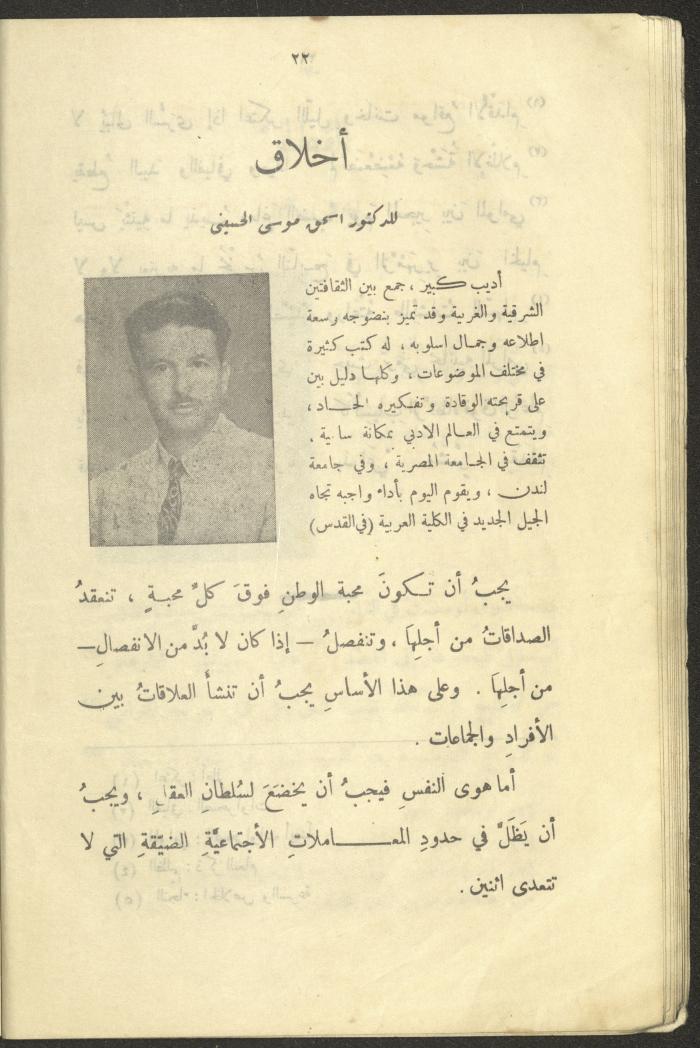 ٢٢
أخلاق
للدكتور اسحق موسى الحسيني
أديب كبير ، جمع بين الثقافتين
الشرقية والغربية وقد تميز بنضوجه وسعة
اطلاعه وجمال اسلوبه ، له كتب كثيرة
في مختلف الموضوعات ، وكلها دليل بين
على قريحته الوقادة وتفكيره الحاد ،
ويتمتع في العالم الادبي بمكانة سامية .
تثقف في الجامعة المصرية ، وفي جامعة
لندن ، ويقوم اليوم بأداء واجبه تجاه
الجيل الجديد في الكلية العربية (في القدس)
يجبُ أن تكونَ محبة الوطنِ فوقَ كلِّ محبةٍ ، تنعقدُ
الصداقاتُ من أجلِهَا ، وتنفصلُ – إذا كان لا بُدَّ من الانفصالِ –
من أجلِهَا . وعلى هذا الأساسِ يجبُ أن تنشأَ العلاقاتُ بين
الأفرادِ والجماعات .
أما هوى النفسِ فيجبُ أن يخضَعَ لسُلطانِ العقلِ ، ويجبُ
أن يَظَلَّ في حدودِ المعاملاتِ الأجتماعيَّةِ الضيّقةِ التي لا
تتعدى اثنين .